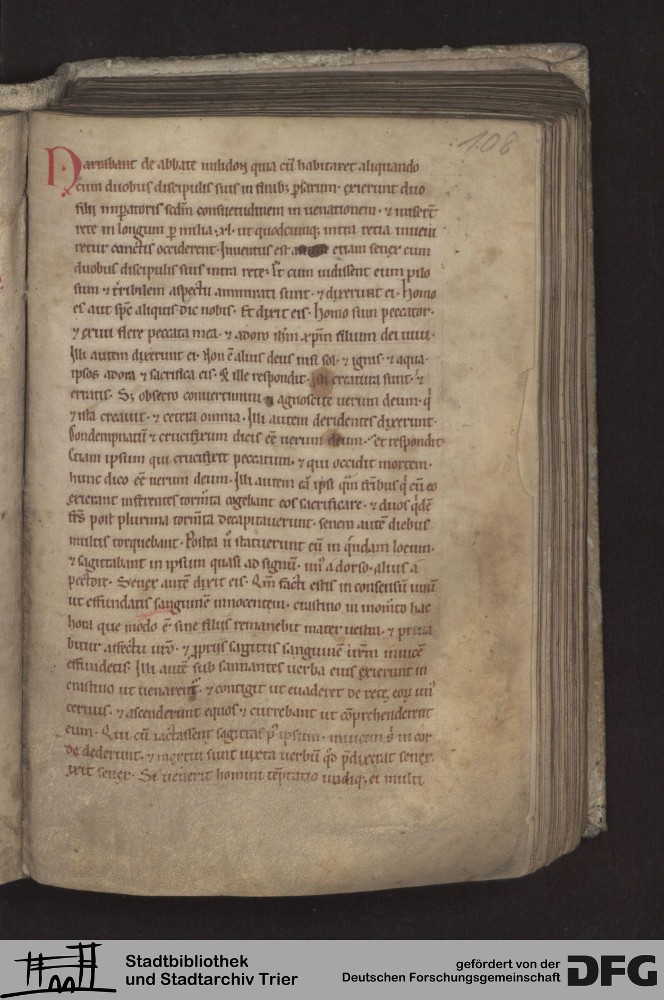 108
Narrabant de abbate milidoꝝ quia cū habitaret aliquando
cum duobus discipulis suis in finibꝫ ꝑsarum · exierunt duo
filii imꝑatoris scdm̄ consuetudinem in uenationem · ⁊ miserꝰt
rete in longum ꝑ milia · xl · ut quodcunqꝫ intra recia inueni
retur cunctis occiderent · Inuentus est etiam senex cum
duobus discipulis suis intra rete · Et cum uidissent eum pilo
sum ⁊ tribilem aspectu ammirati sunt · ⁊ dixerunt ei · Homo
es aut spē aliquis dic nobis · Et dixit eis · Homo sum peccator ·
⁊ exiui flere peccata mea · ⁊ adoro ihm̄ xpm̄ filium dei uiui ·
Illi autem dixerunt ei · Non ē alius deus nisi sol · ⁊ ignis · ⁊ aqua ·
ipsos adora ⁊ sacrifica eis · At ille respondit · creatura sunt ·
erratis · Sꝫ obsecro conuertimini ⁊ agnoscite uerum deum · q̇
⁊ ista creauit · ⁊ cetera omnia · Illi autem deridentes dixerunt ·
Condempnatū ⁊ crucifixum dicis eē uerum deum · et respondit
Etiam ipsum qui crucifixit peccatum · ⁊ qui occidit mortem ·
hunc dico eē uerum deum · Illi autem eā ipsi qm̄ fr̄ibus q̇ cū eo
exierant inferentes torm̄ta cogebant eos sacrificare · ⁊ duos q̇dē
fr̄s post plurima torm̄ta decapitauerunt · senem autē diebus
multis torquebant · Postea ū statuerunt eū in q̇ndam locum ·
⁊ sagittabant in ipsum quasi ad signū · unꝰ a dorso · alius a
pectore · Senex autē dixit eis · Qm̄ facti estis in consensū unū
ut effundatis sanguinē innocentem · crastino in mom̄to hac
hora que modo ē · sine filiis remanebit mater uestra · ⁊ priua
bitur affectu uro · ⁊ ꝓpriis sagittis sanguinē urm̄ inuicē
effundetis · Illi autē subsannantes uerba eius exierunt in
crastino ut uenarent · ⁊ contigit ut euaderet de rete eoꝝ unꝰ
ceruus · ⁊ ascenderunt equos ⁊ currebant ut cōprehenderent
eum · Qui cū iactassent sagittas pꝰ ipsum · inuicem s̄ in cor
de dederunt · ⁊ mortui sunt iuxta uerbū qd̄ p̄dixerat senex
xit senex · Si uenerit homini tēptatio undiqꝫ ei multi
Stadtbibliothek
und Stadtarchiv Trier
gefördert von der
Deutschen Forschungsgemeinschaft
DFG